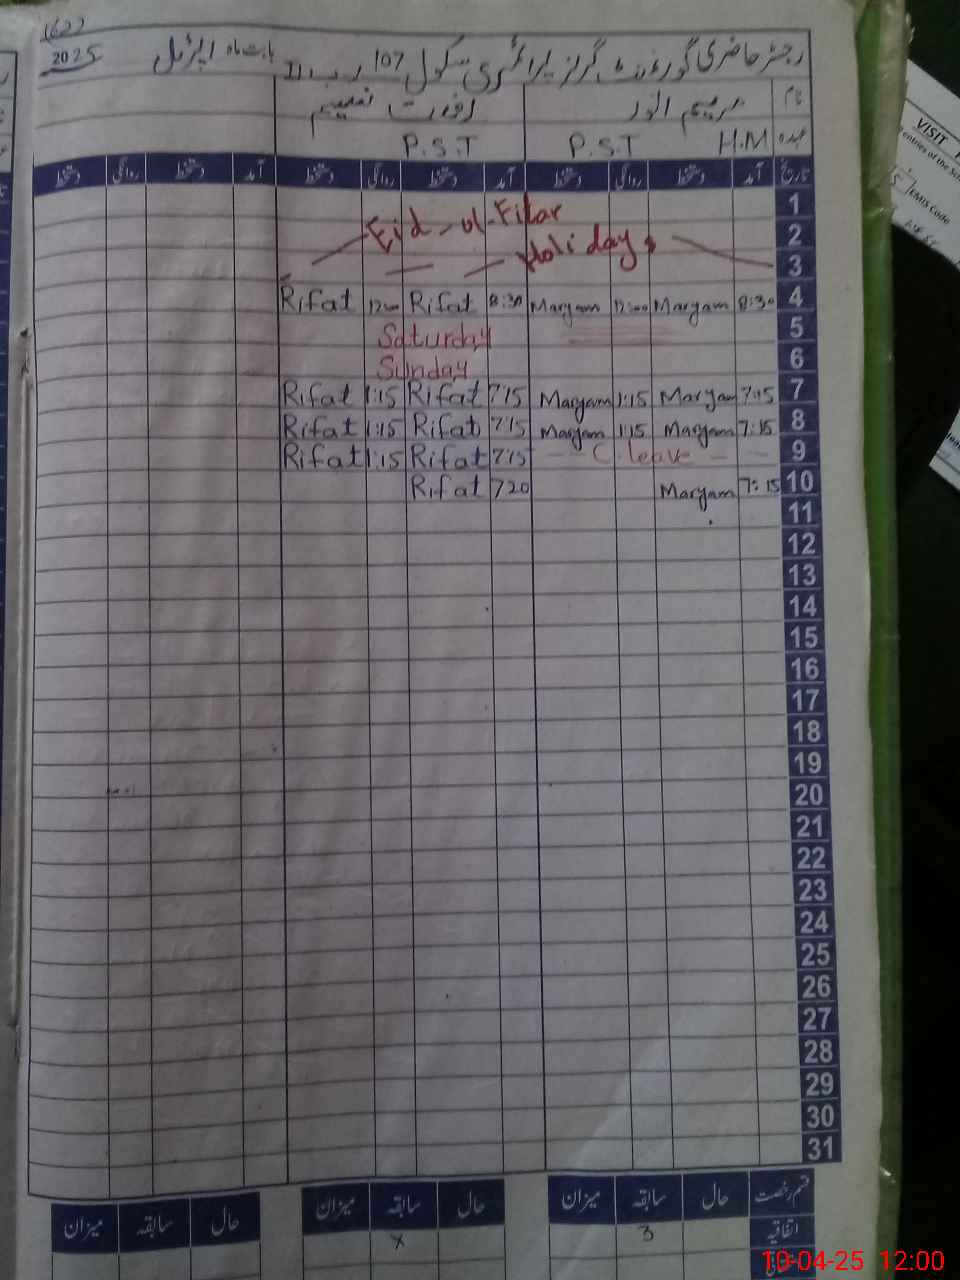 (62)
رجسٹر حاضری گورنمنٹ گرلز پرائمری سکول 107 ر ب II بابت ماہ اپریل 2025
نام مریم انور رفعت نعیم
عہدہ H.M P.S.T P.S.T
تاریخ آمد دستخط روانگی دستخط آمد دستخط روانگی دستخط آمد دستخط روانگی دستخط
1
Eid-ul-Fitar
2
Holidays
3
Rifat 12:00 Rifat 8:30 Maryam 12:00 Maryam 8:30 4
Saturday 5
Sunday 6
Rifat 1:15 Rifat 7:15 Maryam 1:15 Maryam 7:15 7
Rifat 1:15 Rifat 7:15 Maryam 1:15 Maryam 7:15 8
Rifat 1:15 Rifat 7:15 C. leave 9
Rifat 720 Maryam 7:15 10
11
12
13
14
15
16
17
18
19
20
21
22
23
24
25
26
27
28
29
30
31
قسم رخصت حال سابقہ میزان حال سابقہ میزان حال سابقہ میزان
اتفاقیہ 3 x
VISIT
entries of the
EMIS Code
10-04-25 12:00